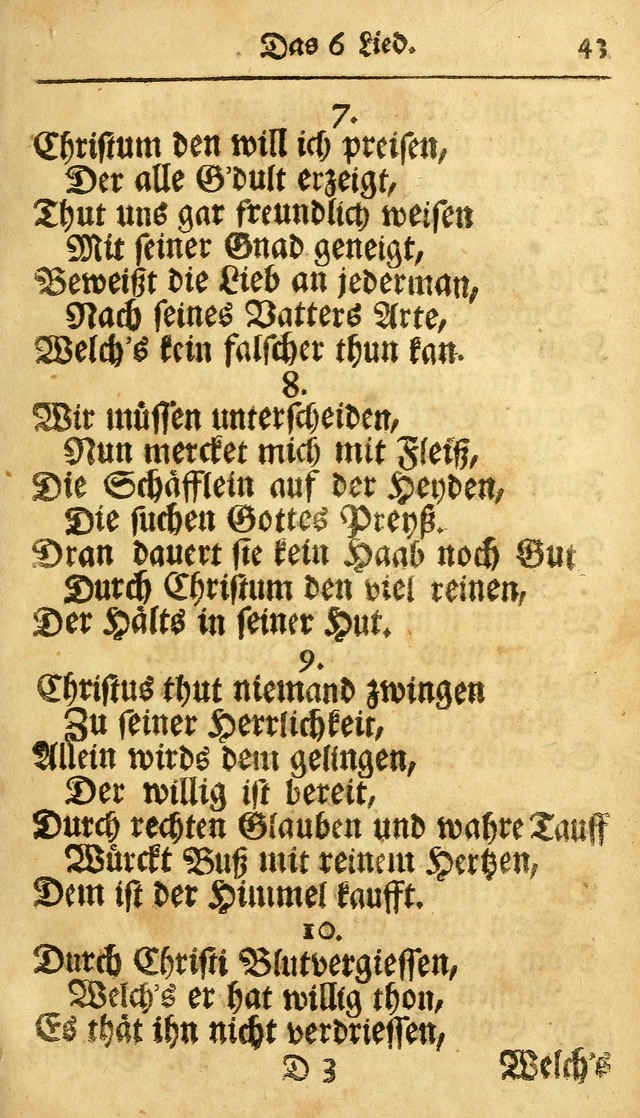 Das 6 Lied. 43
7.
Christum den will ich preisen,
Der alle G'dult erzeigt,
Thut uns gar freundlich weisen
Mit seiner Gnad geneigt,
Beweißt die Lieb an jederman,
Nach seines Vatters Arte,
Welch's kein falscher thun kan.
8.
Wir müssen unterscheiden,
Nun mercket mich mit Fleiß,
Die Schäfflein auf der Heyden,
Die suchen Gottes Preyß.
Dran dauert sie kein Haab noch Gut
Durch Christum den viel reinen,
Der Hälts in seiner Hut.
9.
Christus thut niemand zwingen
Zu seiner Herrlichkeit,
Allein wirds dem gelingen,
Der willig ist bereit,
Durch rechten Glauben und wahre Tauff
Würckt Buß mit reinem Hertzen,
Dem ist der Himmel kaufft.
10.
Durch Christi Blutvergiessen,
Welch's er hat willig thon,
Es thät ihn nicht verdriessen,
D 3 Welch's